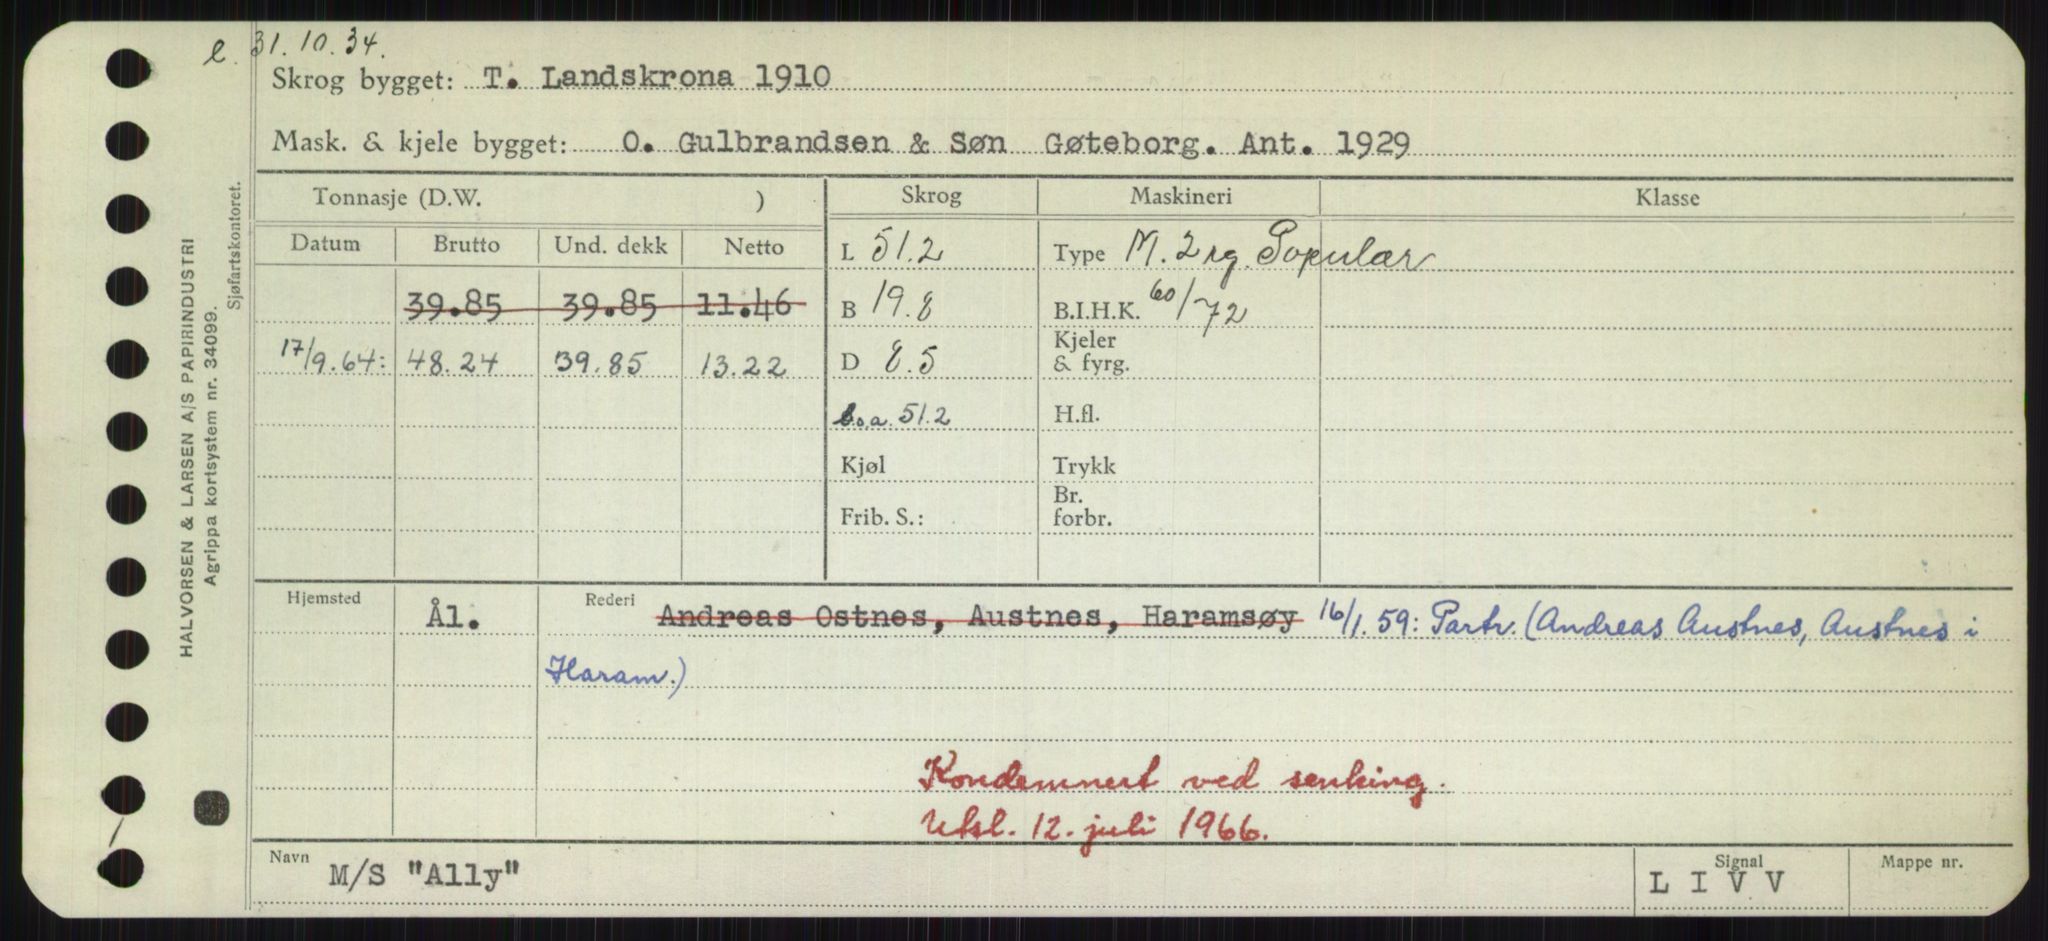 e. 31.10.34.
Skrog bygget: T. Landskrona 1910
Mask. & kjele bygget: O. Gulbrandsen & Søn Gøteborg. Ant. 1929
HALVORSEN & LARSEN A/S PAPIRINDUSTRI
Agrippa kortsystem nr. 34099.
Sjøfartskontoret.
Tonnasje (D.W. ) Skrog Maskineri Klasse
Datum Brutto Und. dekk Netto L 51.2 Type M. 2 rg. Populær
39.85 39.85 11.46 B 19.8 B.I.H.K. 60/72
17/9.64: 48.24 39.85 13.22 D 8.5 Kjeler
& fyrg.
L.o.a. 51.2 H.fl.
Kjøl Trykk
Frib. S.: Br.
forbr.
Hjemsted Ål. Rederi Andreas Ostnes, Austnes, Haramsøy 16/1.59: Partr. (Andreas Austnes, Austnes i
Haram.)
Kondemnert ved senking.
Utsl. 12. juli 1966.
Navn M/S "Ally" Signal L I V V Mappe nr.